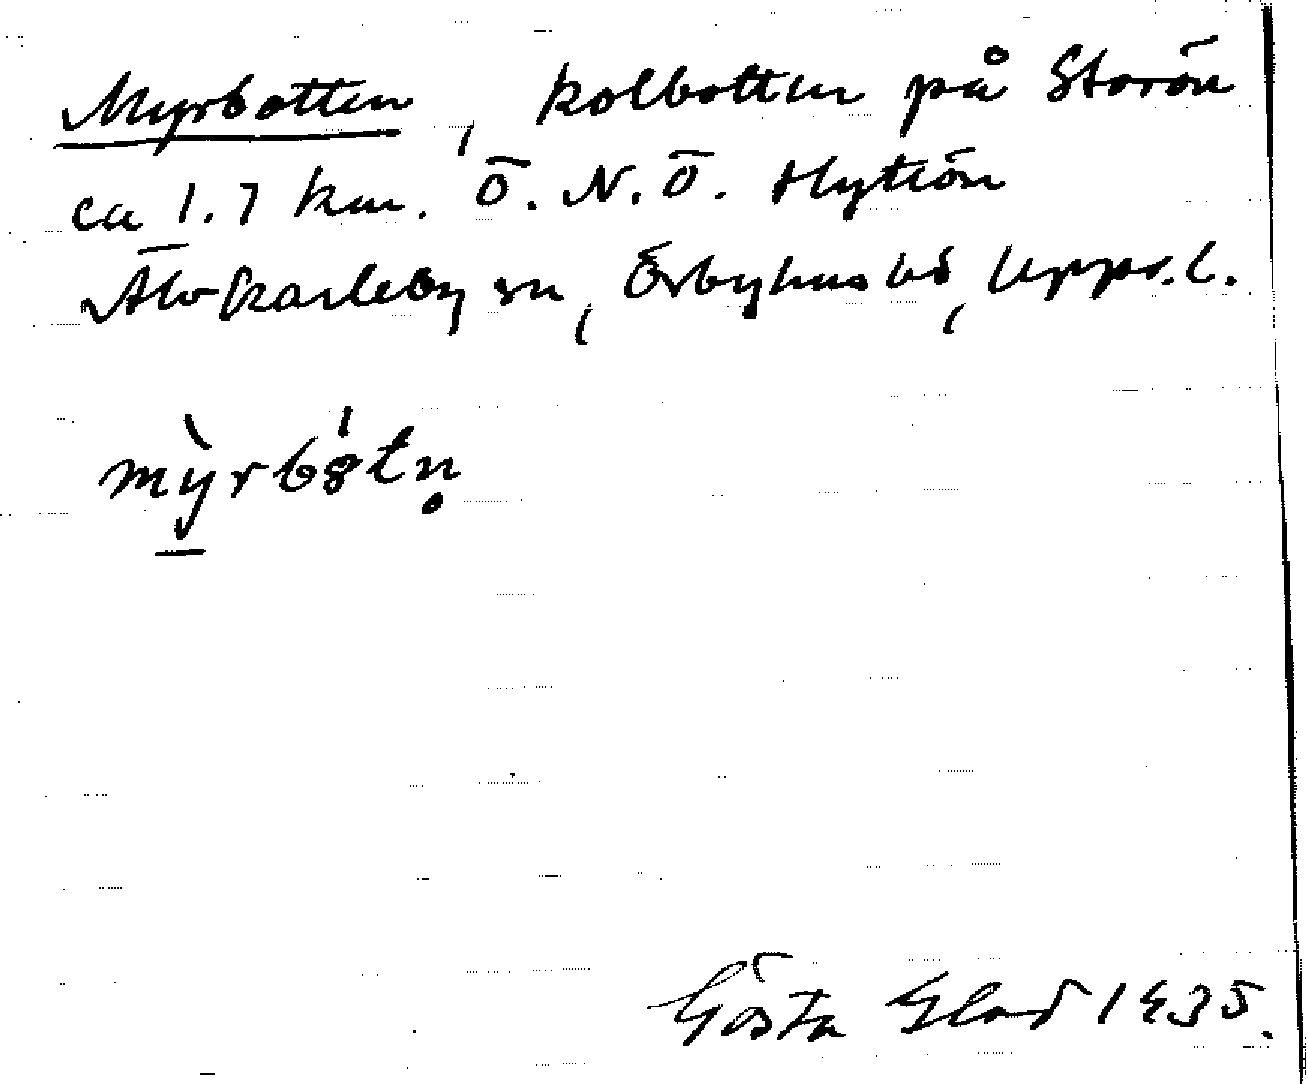 Myrbotten, kolbotten på Storön
ca 1.7 km. Ö.N.Ö. Hytiön
Älvkarleby sn, Örbyhus hd, Upps.l.
mỳrbȣ́tn̥
Gösta Glad 1935.